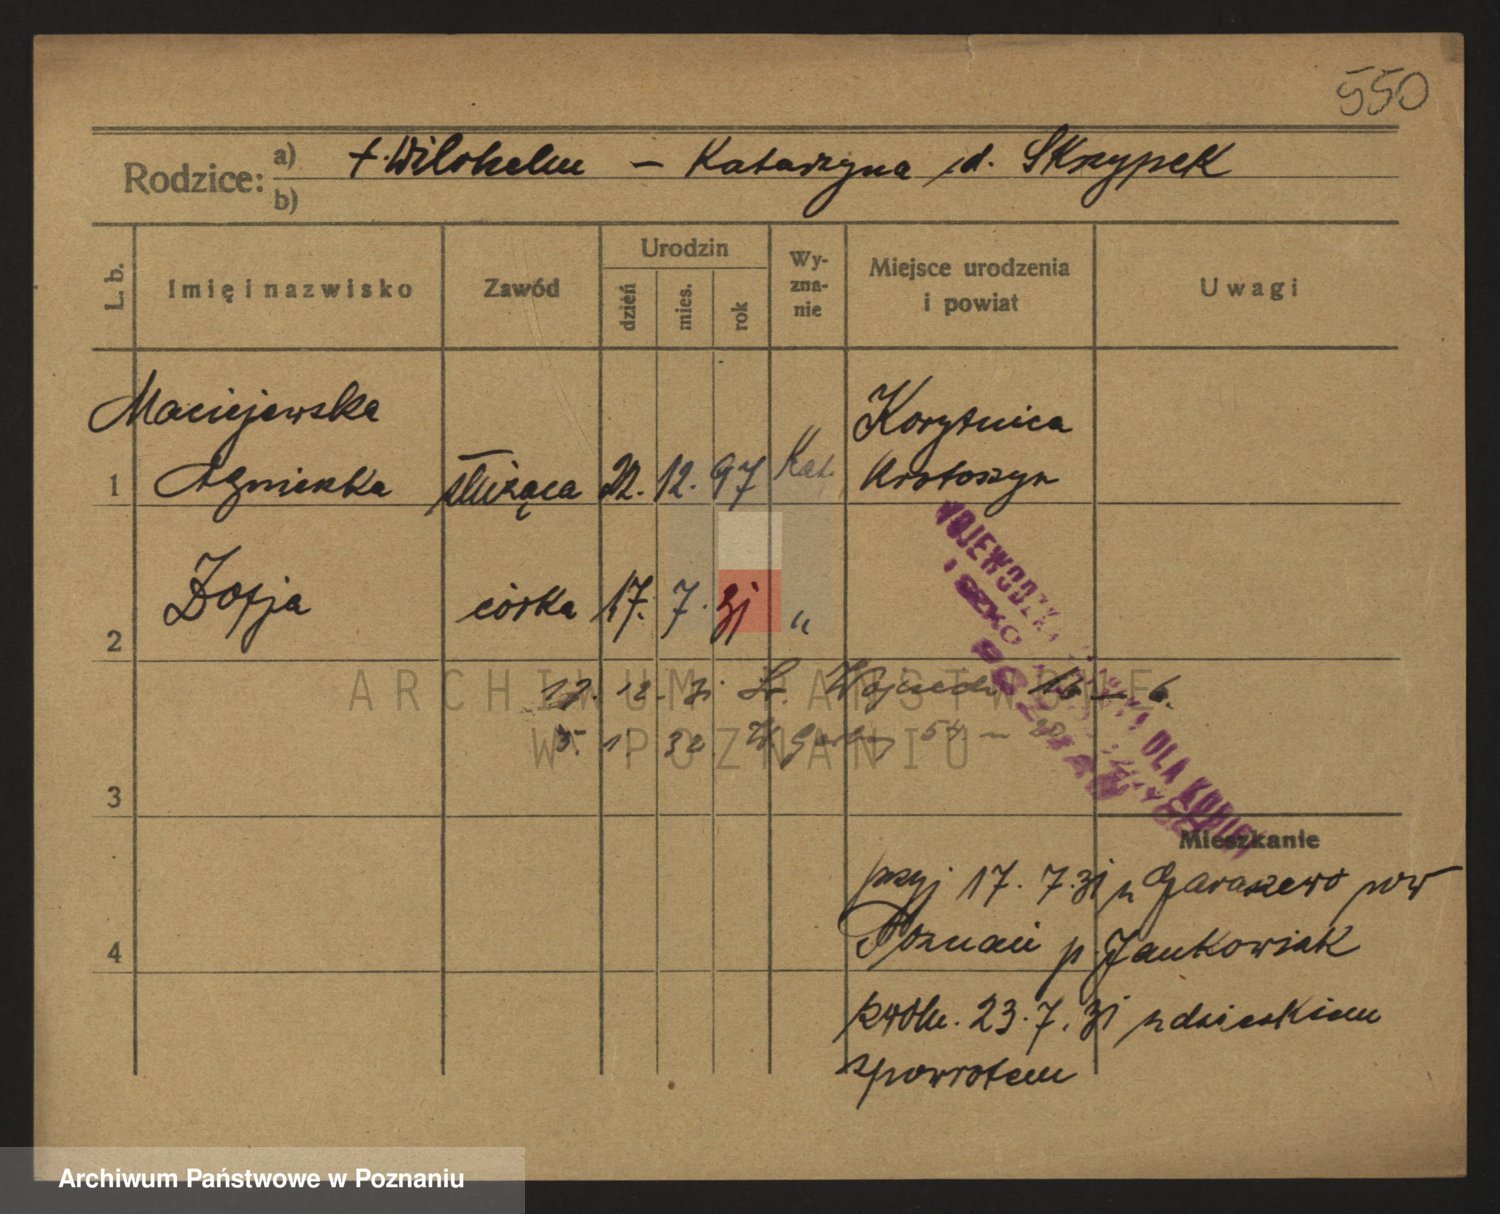 550
Rodzice: a) b)
+. Wilchelm – Katarzyna d. Skrzypek
L. b.
Imię i nazwisko
Zawód
Urodzin
dzień
mies.
rok
Wy-
zna-
nie
Miejsce urodzenia
i powiat
Uwagi
Maciejewska
1 Agnieszka służąca 22. 12. 97 Kat. Korytnica
Krotoszyn
2 Zofja córka 17. 7. 31 "
17. 12. 31 Św. Wojciech 16 – 6.
5. 1. 32
3
WOJEWÓDZKA
DLA KOBIET
POZNAŃ
Mieszkanie
przyj 17. 7. 31 z Garaszewo pow
4 Poznań p. Jankowiak
zwoln. 23. 7. 31 z dzieckiem
zpowrotem
ARCHIWUM PAŃSTWOWE
W POZNANIU
Archiwum Państwowe w Poznaniu